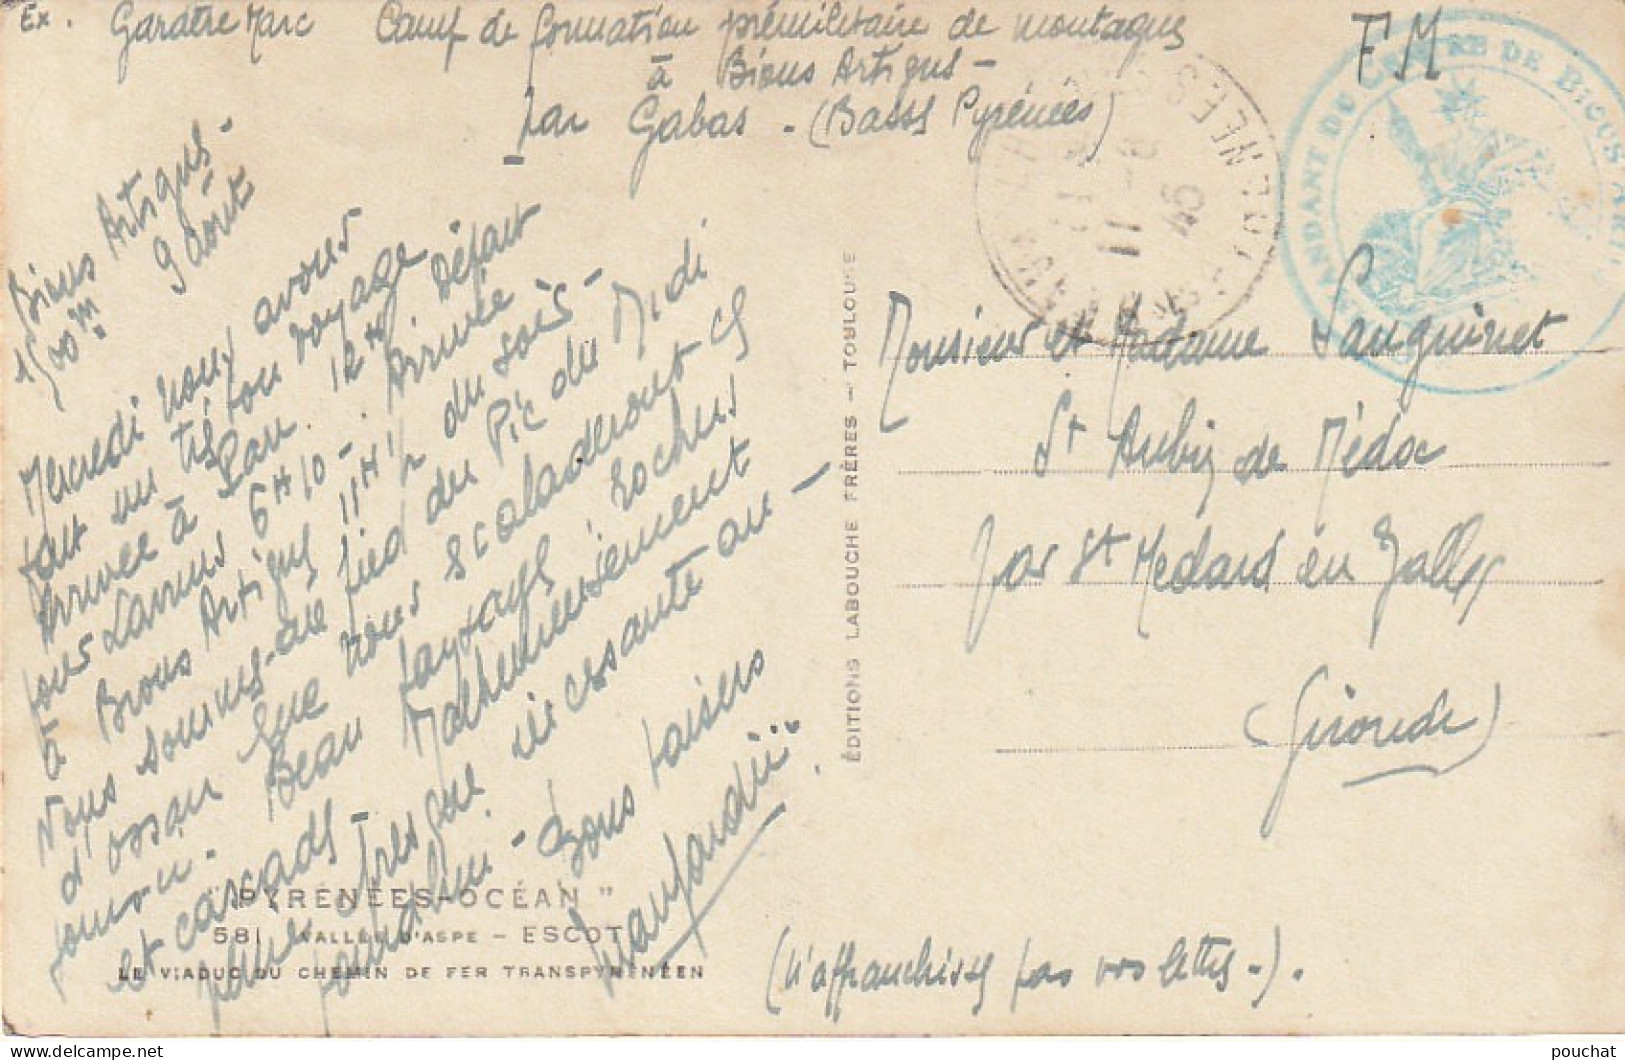 Ex. Gardère Marc Camp de formation prémilitaire de montagne
à Bious Artigues -
par Gabas - (Basses Pyrénées)
FM
COMMANDANT DU CENTRE DE BIOUS ARTIGUES
11 - 8
45
Bious Artigues -
1500 m 9 Août
Mercredi nous avons
fait un très bon voyage
Arrivée à Pau. 12H Départ
pour Laruns 6H10 - Arrivée
à Bious Artigues 11H 1/2 du soir -
Nous sommes au pied du Pic du Midi
d'Ossau que nous escaladeront ces
jours-ci. Beau paysage rocheux
et cascades - Malheureusement
pluie presque incessante au -
jourd'hui - Bons baisers
Monsieur et Madame Sanguinet
St Aubin de Médoc
par St Medard en Jalles
(Gironde)
(N'affranchissez pas vos lettres -).
ÉDITIONS LABOUCHE FRÈRES - TOULOUSE
"PYRÉNÉES-OCÉAN"
581 VALLÉE D'ASPE - ESCOT
LE VIADUC DU CHEMIN DE FER TRANSPYRÉNÉEN
pouchat